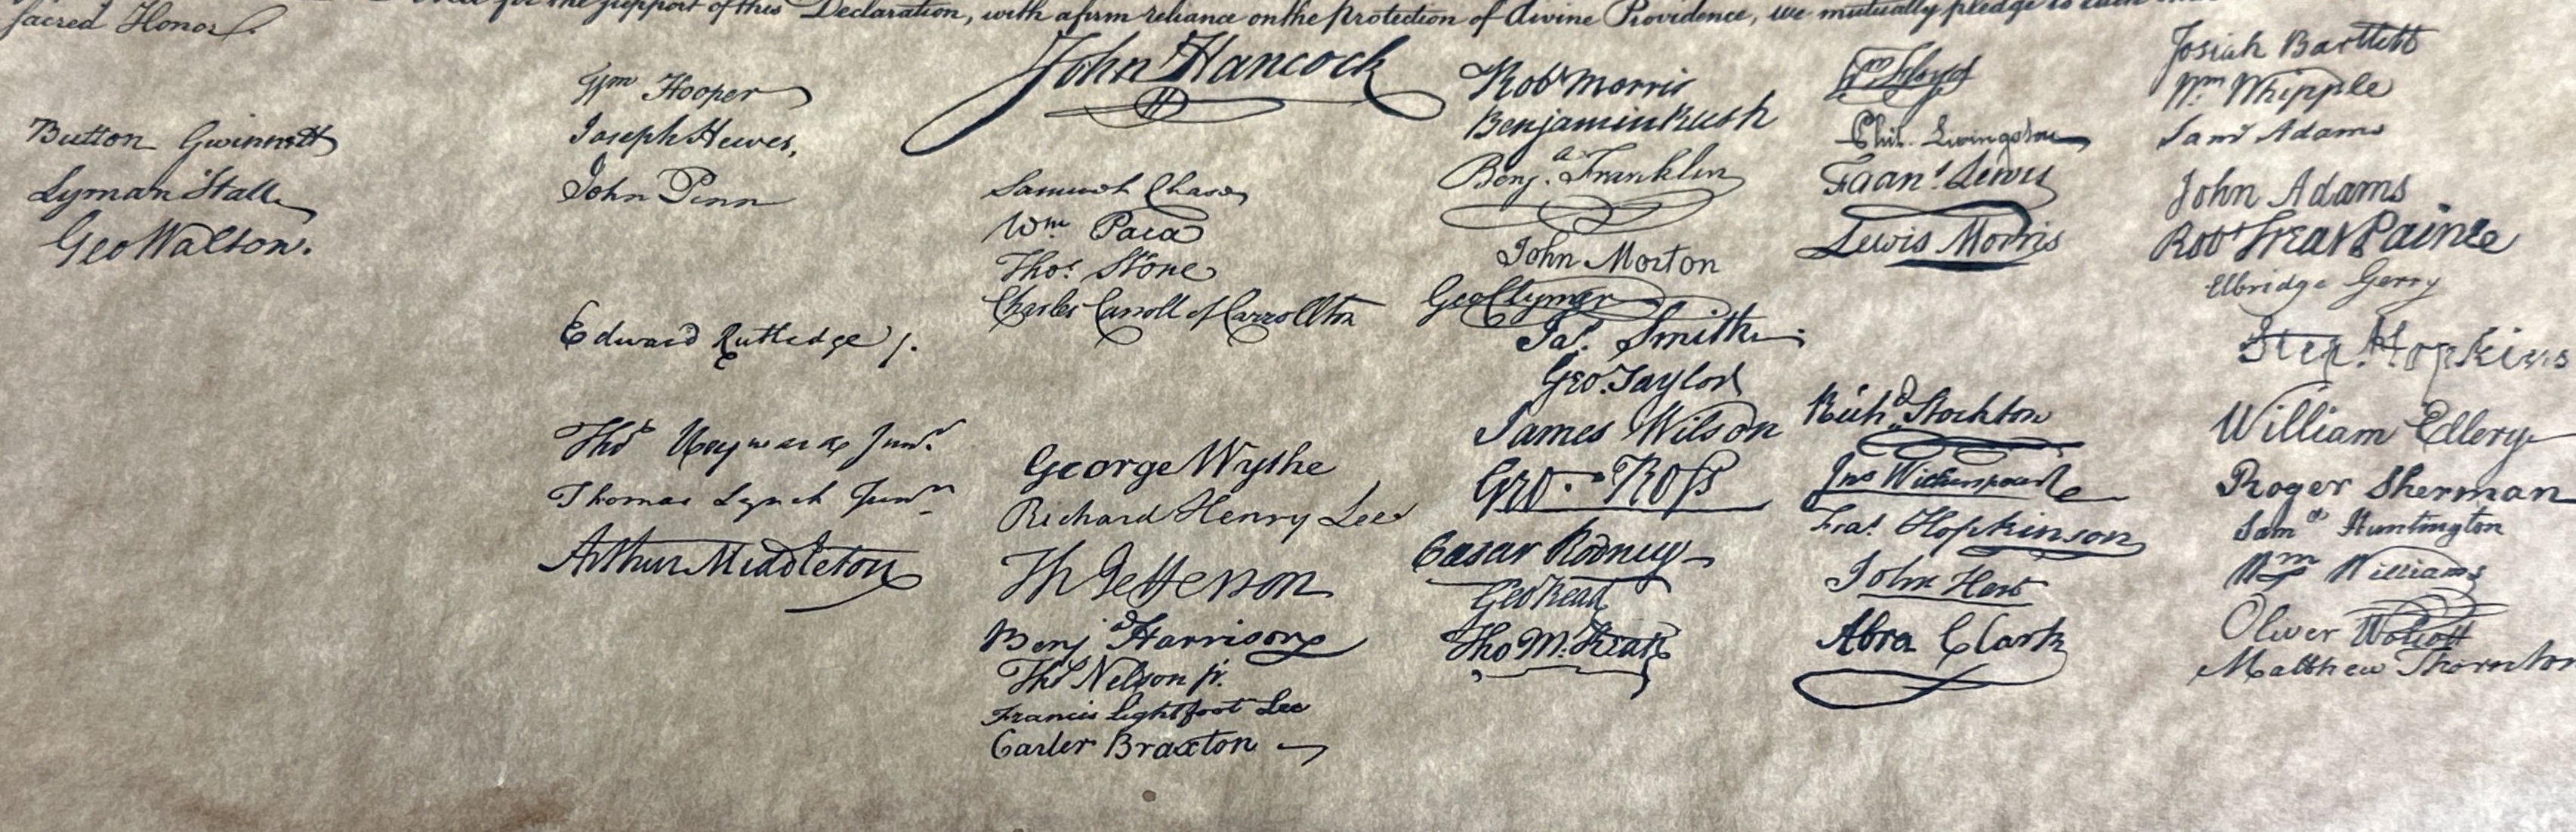 for the support of this Declaration, with a firm reliance on the protection of divine Providence, we mutually pledge to each
sacred Honor.
Button Gwinnett
Lyman Hall
Geo Walton.
Wm Hooper
Joseph Hewes,
John Penn
Edward Rutledge /.
Thos Heyward Junr.
Thomas Lynch Junr.
Arthur Middleton
John Hancock
Samuel Chase
Wm Paca
Thos. Stone
Charles Carroll of Carrollton
George Wythe
Richard Henry Lee
Th Jefferson
Benj Harrison
Thos Nelson jr.
Francis Lightfoot Lee
Carter Braxton
Robt Morris
Benjamin Rush
Benja. Franklin
John Morton
Geo Clymer
Jas. Smith
Geo. Taylor
James Wilson
Geo. Ross
Caesar Rodney
Geo Read
Tho M:Kean
Wm Floyd
Phil. Livingston
Frans. Lewis
Lewis Morris
Richd. Stockton
Jno Witherspoon
Fras. Hopkinson
John Hart
Abra Clark
Josiah Bartlett
Wm: Whipple
Saml Adams
John Adams
Robt Treat Paine
Elbridge Gerry
Step. Hopkins
William Ellery
Roger Sherman
Saml Huntington
Wm Williams
Oliver Wolcott
Matthew Thornton